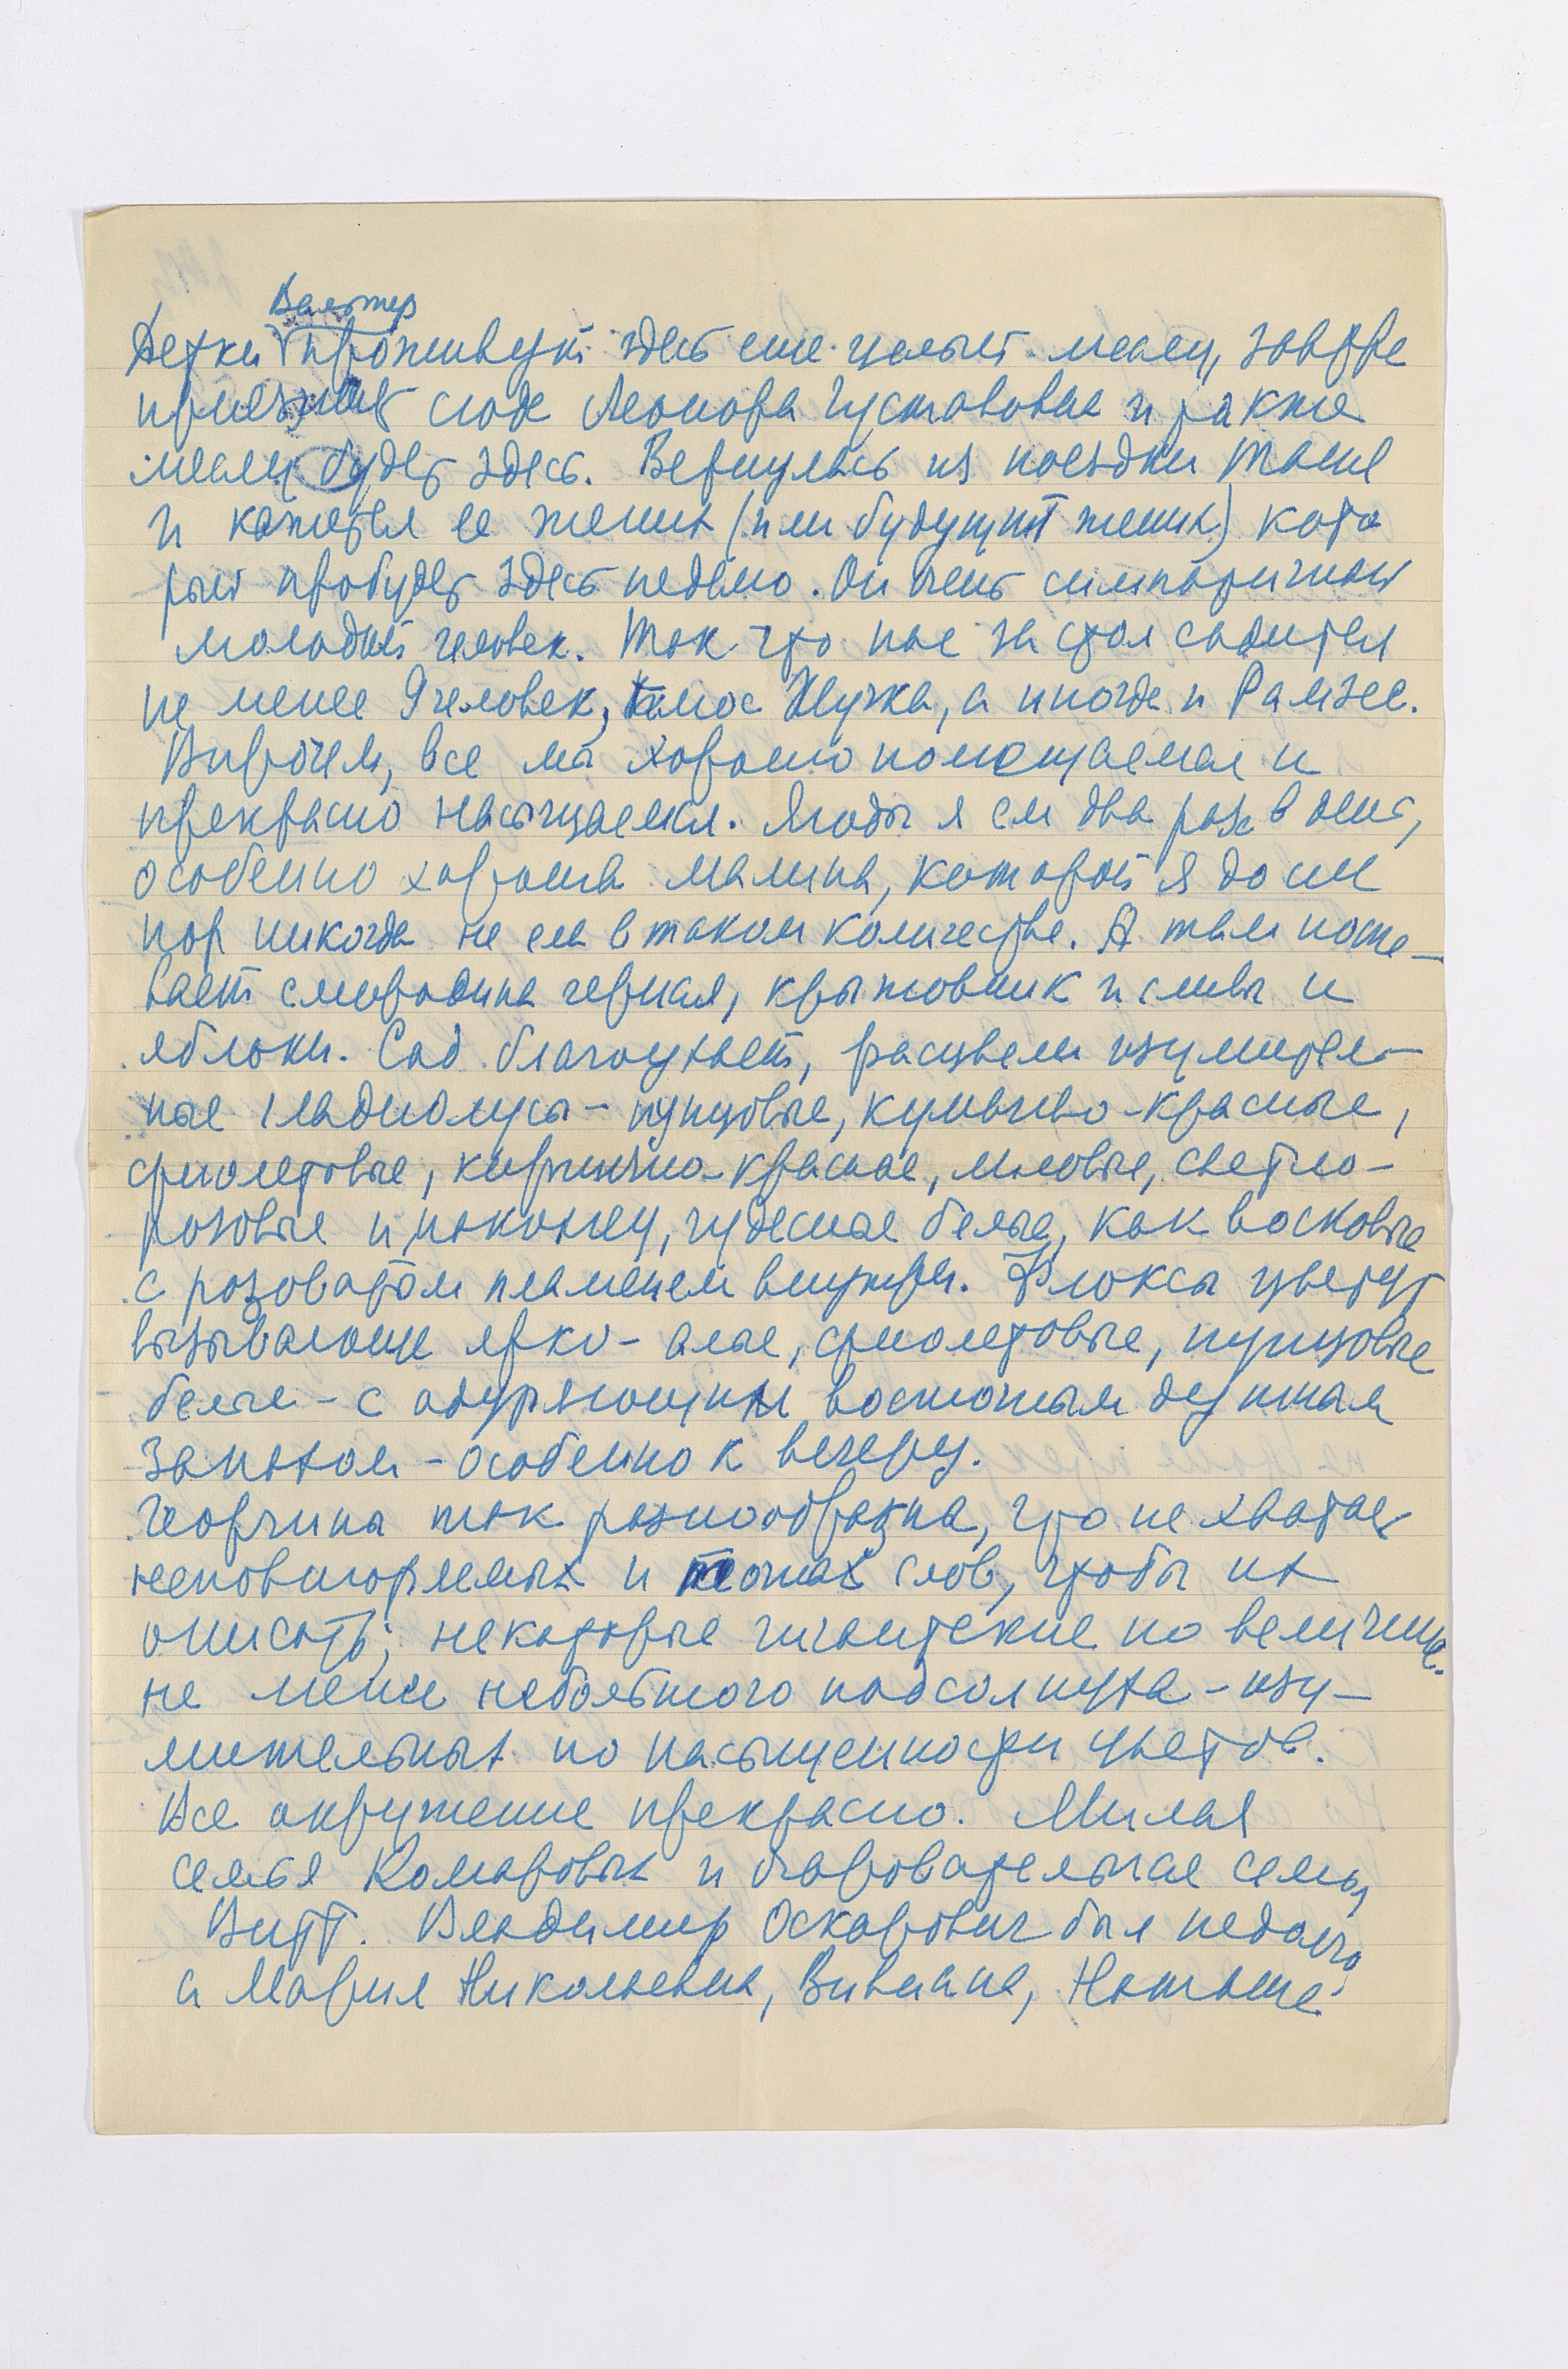 Вальтер
Детки проживут здесь еще целый месяц, завтра
приезжает сюда Леонора Густавовна и также
месяц будет здесь. Вернулась из поездки Таня
и кажется ее жених (или будущий жених) кото
рый пробудет здесь неделю. Он очень симпатичный
молодой человек. Так что нас за стол садится
не менее 9 человек, плюс Жучка, а иногда и Рамзес.
Впрочем, все мы хорошо помещаемся и
прекрасно насыщаемся. Ягоды я ем два раза в день,
особенно хороша малина, которой я до сих
пор никогда не ела в таком количестве. А там поспе-
вает смородина черная, крыжовник и сливы и
яблоки. Сад благоухает, расцвели изумитель-
ные гладиолусы – пунцовые, кумачево-красные,
фиолетовые, кирпично-красные, лиловые, светло-
розовые и, наконец, чудесные белые, как восковые
с розоватым пламенем внутри. Флоксы цветут
вызывающе ярко – алые, фиолетовые, пунцовые
белые – с одуряющим восточным душным
запахом – особенно к вечеру.
Георгины так разнообразны, что не хватает
неповторимых и точных слов, чтобы их
описать; некоторые гигантские по величине.
не менее небольшого подсолнуха – изу-
мительных по насыщенности цветов.
Все окружение прекрасно. Милая
семья Комаровых и очаровательная семья
Витт. Владимир Оскарович был недолго,
а Мария Николаевна, Вивиана, Наташа